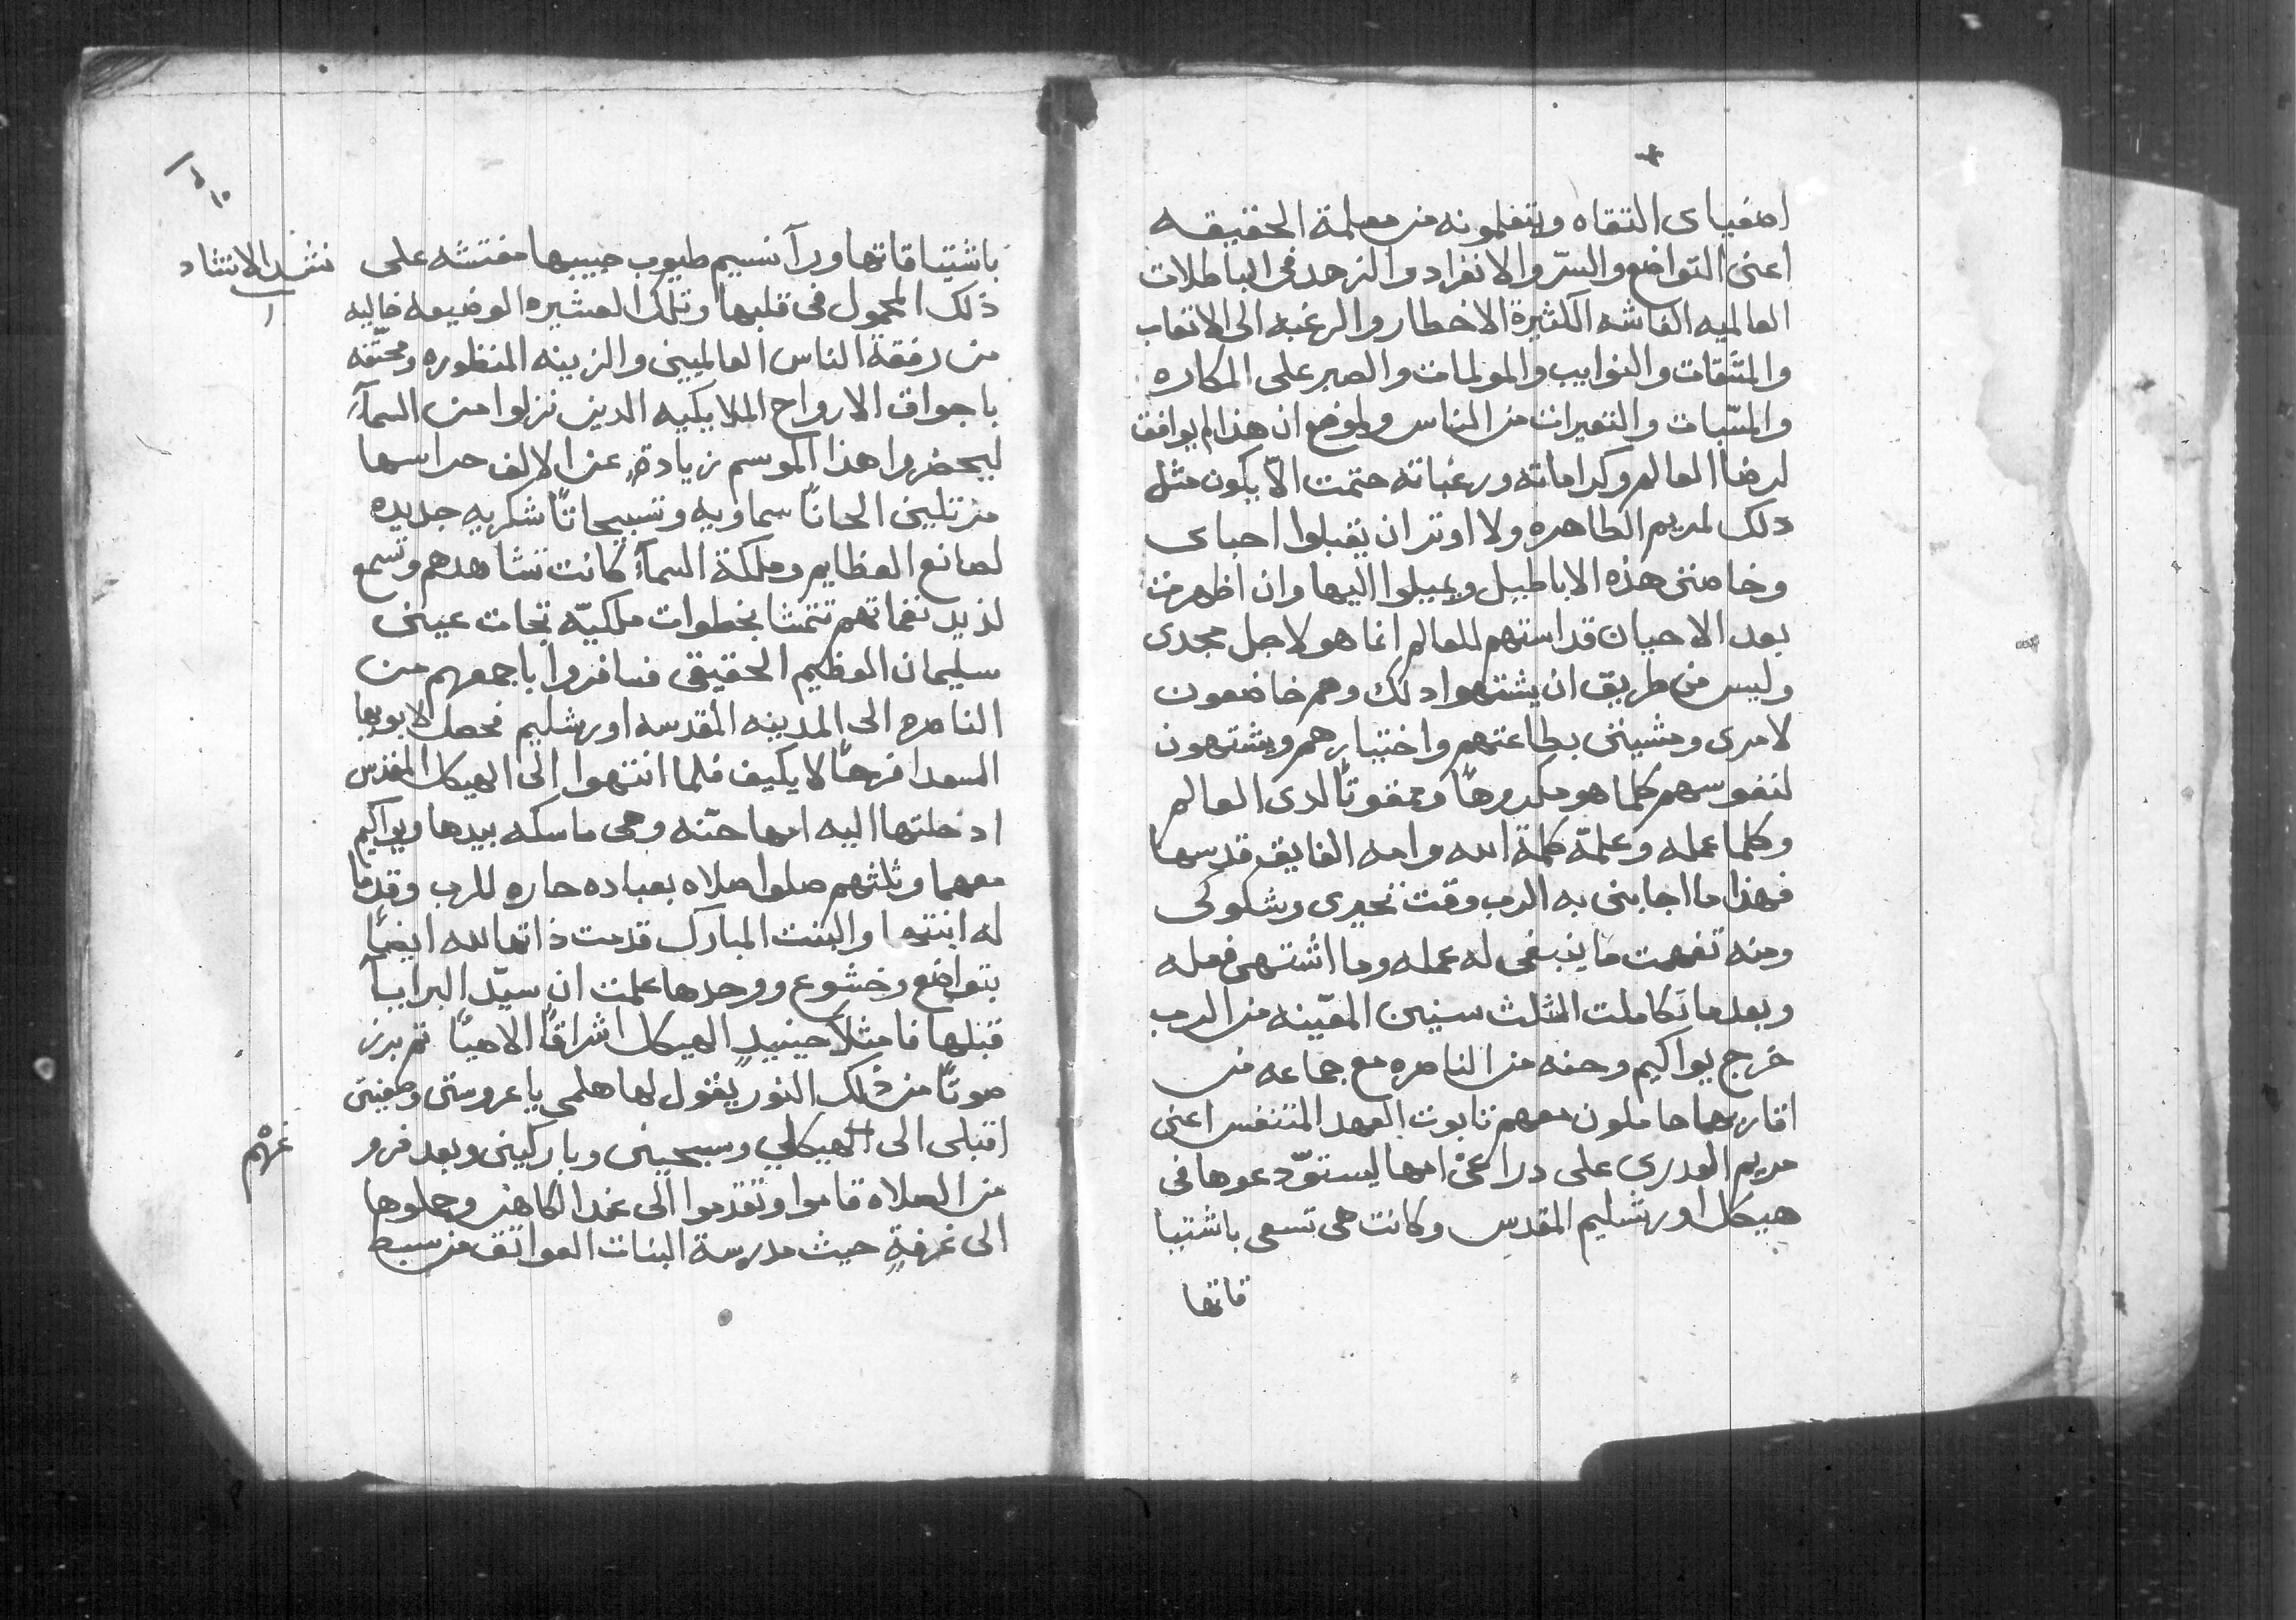 اصفياى التقاه ويتعلمونه من معلمة الحقيقه
اعنى التواضع والسرّ والانفراد والزهد فى الباطلات
العالميه الغاشه الكثيرة الاخطار والرغبه الى الاتعاب
والمشقّات والنوايب والمولمات والصبر على المكاره
والمسّبات والتعيرات من الناس ولموضع ان هذا لم يوافق
لرضا العالم وكراماته ورغباته حتمت الّا يكون مثل
دلك لمريم الطاهره ولا اوثر ان يقبلوا احباى
وخاصتى هذه الاباطيل ويميلوا اليها وان اظهرت
بعد الاحيان قداستهم للعالم انما هو لاجل مجدى
وليس من طريق ان يشتهوا دلك وهم خاضعون
لامرى ومشيتى بطاعتهم واختبارهم ويشتهون
لنفوسهم كلما هو مكروهًا وممقوتًا لدى العالم
وكلما عمله وعلمّه كلمة الله وامه الفايق قدسها
فهذا ما اجابنى به الرب وقت تحيرى وشكوكى
ومنه تفهمت ما ينبغى له عمله وما اشتهى فعله
وبعد ما تكاملت الثلث سنين المعّينه من الرب
خرج يواكيم وحنه من الناصره مع جماعه من
اقاربهما حاملون معهم تابوت العهد المتنفس اعنى
مريم العدرى على دراعىْ امها ليستوّدعوها فى
هيكل اورشليم المقدس وكانت هى تسعى باشتيا
قاتها
باشتياقاتها ورآ نسيم طيوب حبيبها مفتشه على
نشيد الانشاد
١
ذلك المحمول فى قلبها وتلك العشيره الوضيعه خاليه
من رفقة الناس العالميين والزينه المنظوره ومحتّفه
باجواق الارواح الملايكيه الدين نزلوا من السمآء
ليحضروا هذا الموسم زيادةٍ عن الالف حراسها
مرتلين الحانًا سماويه وتسبيحاتًا شكريه جديده
لصانع العظايم وملكة السمآء كانت تشاهدهم وتسمع
لذيد نغماتهم تتمشا بخطوات ملكيّه تجات عينى
سليمان العظيم الحقيقى فسافروا باجمعهم من
الناصره الى المدينه المقدسه اورشليم فحصل لابويها
السعدا فرحًا لا يكيف فلما انتهوا الى الهيكل المقدس
ادخلتها اليه امها حنّه وهى ماسكه بيدها ويواكيم
معهما وثلثتهم صلوا صلاه بعباده حاره للرب وقدّما
له ابنتهما والبنت المبارك قدمت ذاتها لله ايضًا
بتواضع وخشوع ووحدها علمت ان سيّد البرايا
قبلها فامتلا حينيدٍ الهيكل اشراقًا الاهيًا ثم برز
صوتًا من ذلك النور يقول لها هلمى يا عروستى وصفيتى
اقبلى الى الهيكلي وسبحينى وباركينى وبعد فرو
غهم
من الصلاه قاموا وتقدموا الى عند الكاهن وحملوها
الى غرفةٍ حيث مدرسة البنات العواتق من سبط